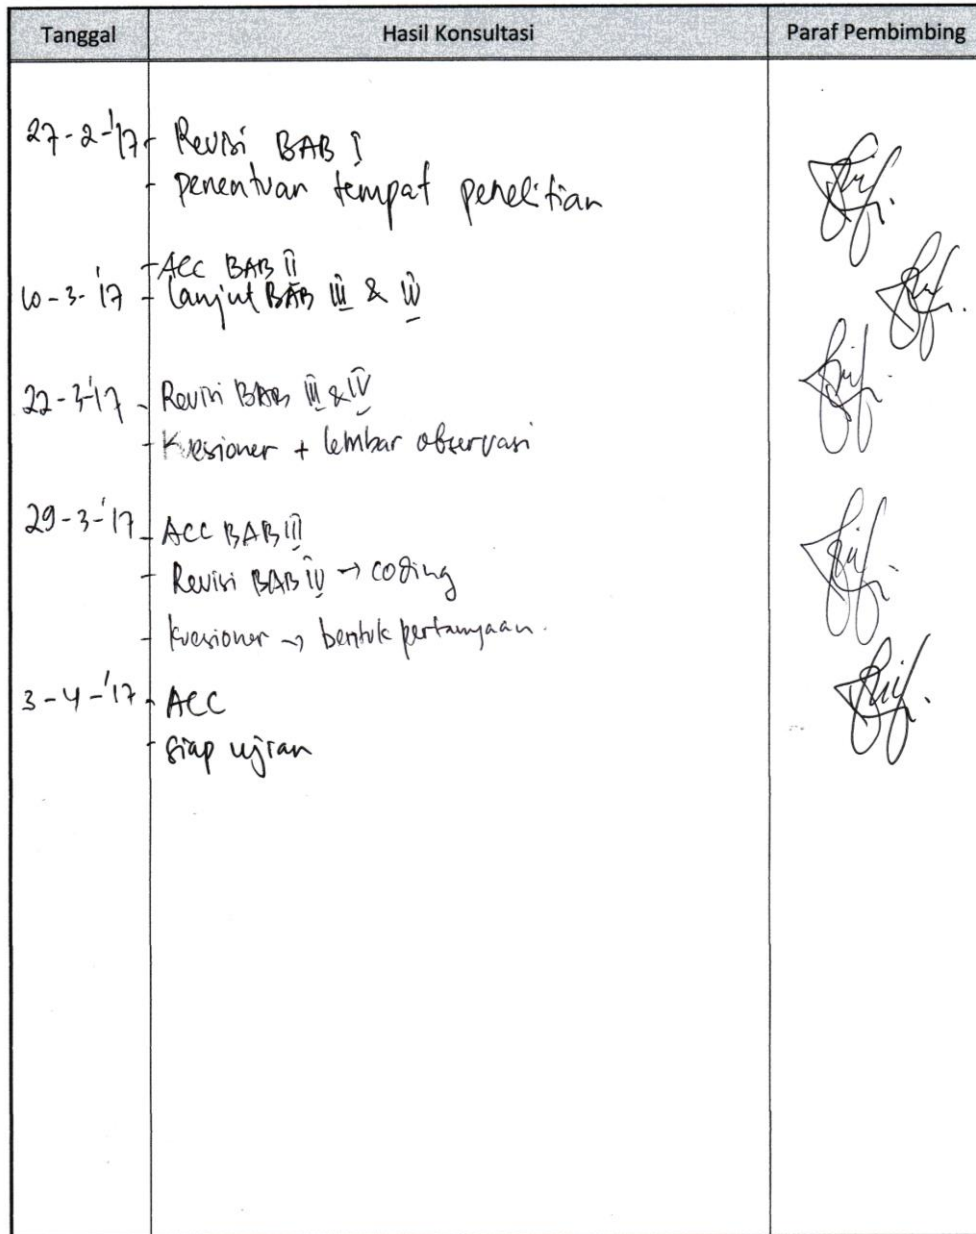 Tanggal Hasil Konsultasi Paraf Pembimbing
27-2-'17 - Revisi BAB I
- penentuan tempat penelitian
- Acc BAB II
10-3-'17 - lanjut BAB III & IV
22-3-'17 - Revisi BAB III & IV
- Kuesioner + lembar observasi
29-3-'17 - ACC BAB III
- Revisi BAB IV → coding
- kuesioner → bentuk pertanyaan.
3-4-'17 - ACC
- siap ujian